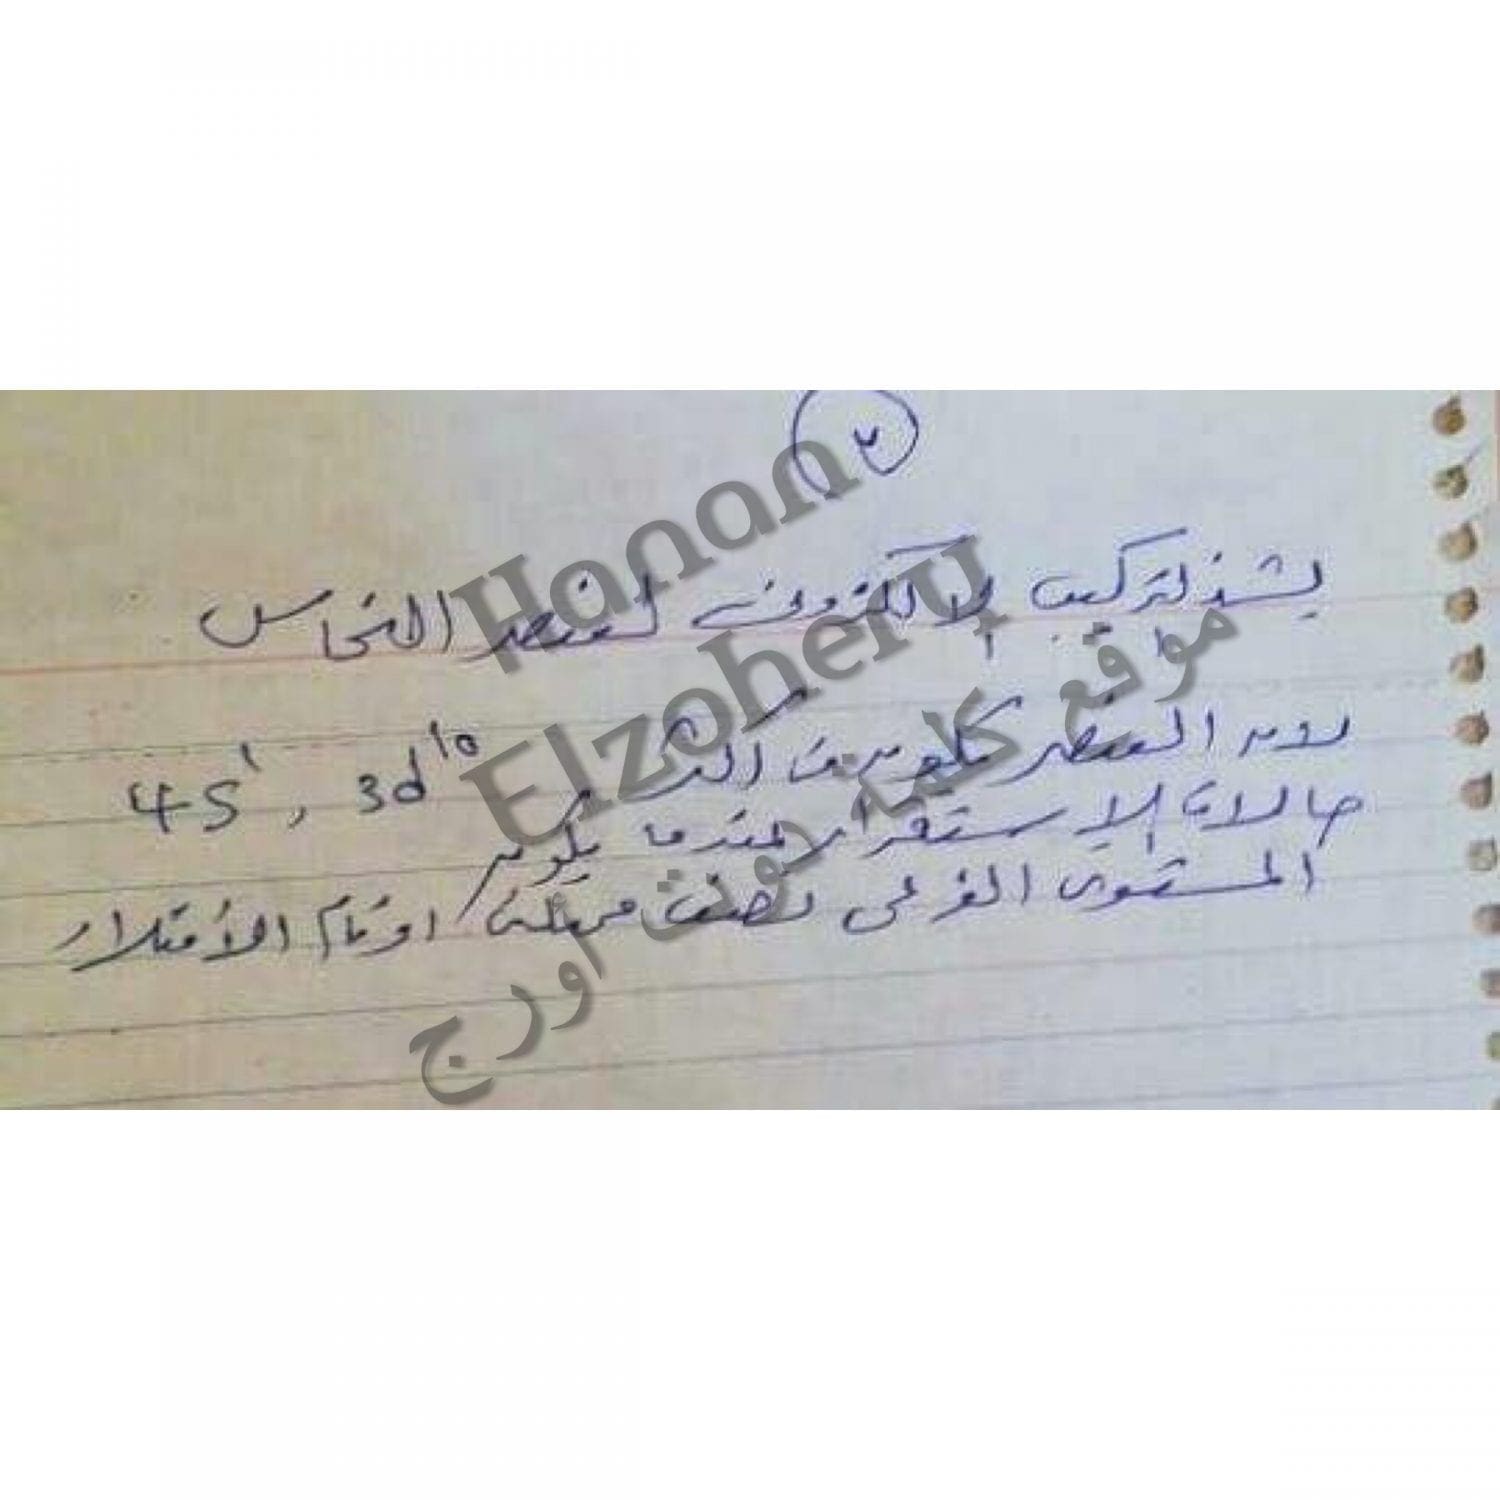 ٢
يشذ التركيب الالكترونى لعنصر النحاس
4S¹ , 3d¹⁰
لان العنصر يكون فى اكثر
حالات الاستقرار عندما يكون
المستوى الفرعى نصف ممتلئ او تام الأمتلاء
Hanan
Elzohery
موقع كلمة دوت اورج